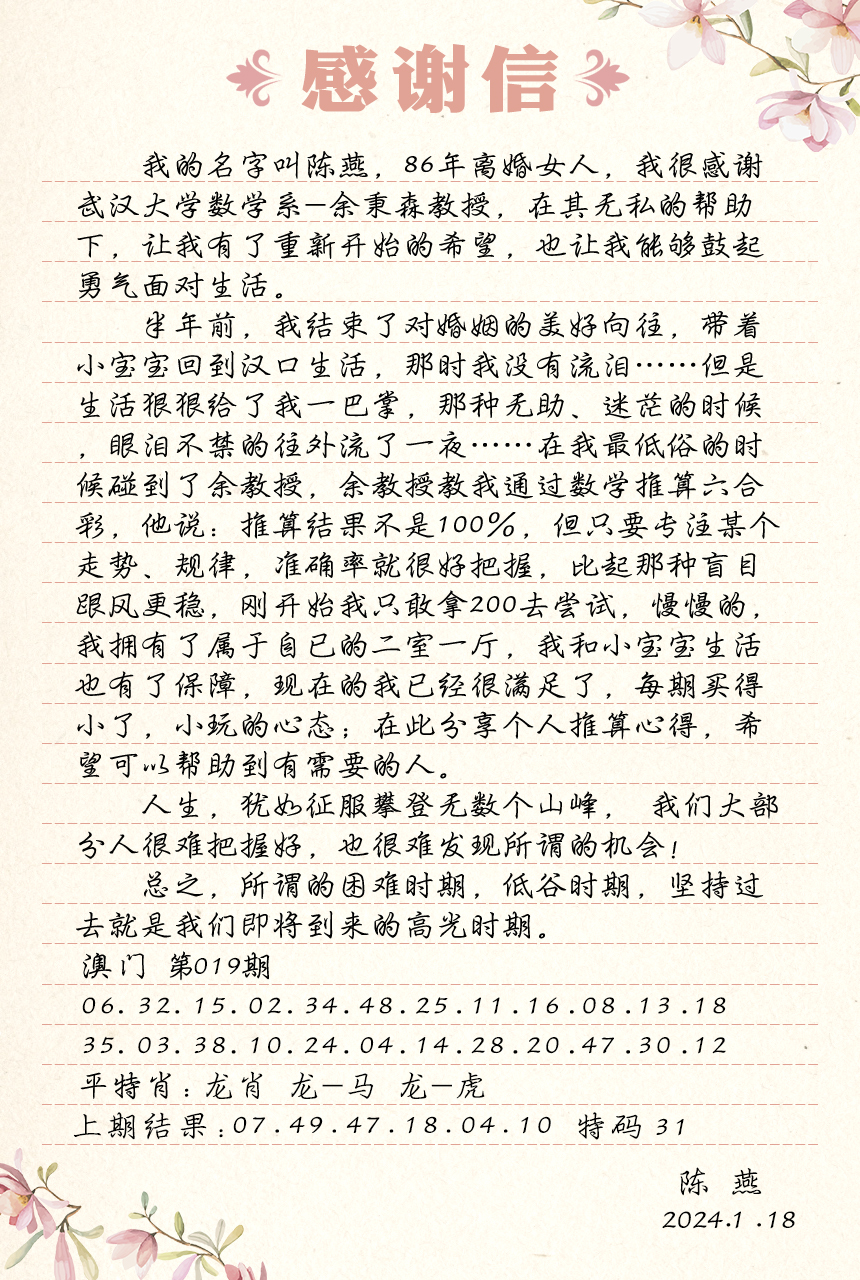 感谢信
我的名字叫陈燕，86年离婚女人，我很感谢
武汉大学数学系—余秉森教授，在其无私的帮助
下，让我有了重新开始的希望，也让我能够鼓起
勇气面对生活。
半年前，我结束了对婚姻的美好向往，带着
小宝宝回到汉口生活，那时我没有流泪……但是
生活狠狠给了我一巴掌，那种无助、迷茫的时候
，眼泪不禁的往外流了一夜……在我最低俗的时
候碰到了余教授，余教授教我通过数学推算六合
彩，他说：推算结果不是100%，但只要专注某个
走势、规律，准确率就很好把握，比起那种盲目
跟风更稳，刚开始我只敢拿200去尝试，慢慢的，
我拥有了属于自已的二室一厅，我和小宝宝生活
也有了保障，现在的我已经很满足了，每期买得
小了，小玩的心态；在此分享个人推算心得，希
望可以帮助到有需要的人。
人生，犹如征服攀登无数个山峰， 我们大部
分人很难把握好，也很难发现所谓的机会！
总之，所谓的困难时期，低谷时期，坚持过
去就是我们即将到来的高光时期。
澳门 第019期
06.32.15.02.34.48.25.11.16.08.13.18
35.03.38.10.24.04.14.28.20.47.30.12
平特肖：龙肖 龙—马 龙—虎
上期结果：07.49.47.18.04.10 特码 31
陈 燕
2024.1.18